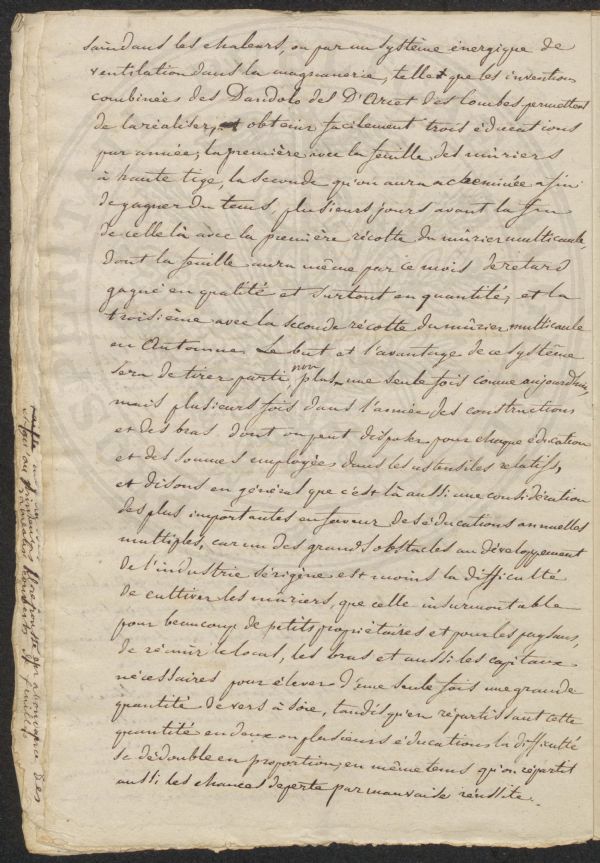 sain dans les chaleurs, ou par un système énergique de
ventilation dans la magnanerie, telle que les inventions
combinées des Dandolo des D'Arcet des Combes permettent
de la réaliser, et obtenir facilement trois éducations
par année; la première avec la feuille des mûriers
à haute tige, la seconde qu'on aura acheminée afin
de gagner du tems, plusieurs jours avant la fin
de celle là avec la première récolte du mûrier multicaule,
dont la feuille aura même par ce mois de retard
gagné en qualité et surtout en quantité, et la
troisième avec la seconde récolte du mûrier multicaule
en Automne. Le but et l'avantage de ce système
sera de tirer parti non plus une seule fois comme aujourd'hui,
mais plusieurs fois dans l'année des constructions
et des bras dont on peut disposer pour chaque éducation
et des sommes employées dans les ustensiles relatifs,
et disons en général que c'est là aussi une considération
des plus importantes en faveur des éducations annuelles
multiples, car un des grands obstacles au développement
de l'industrie sérigène est moins la difficulté
de cultiver les mûriers, que celle insurmontable
pour beaucoup de petits propriétaires et pour les paysans,
de réunir le local, les bras et aussi les capitaux
nécessaires pour élever d'une seule fois une grande
quantité de vers à soie, tandis qu'en répartissant cette
quantité en deux ou plusieurs éducations la difficulté
se dédouble en proportion, en même tems qu'on répartit
aussi les chances de perte par mauvaise réussite.
des
rameaux
feuilles